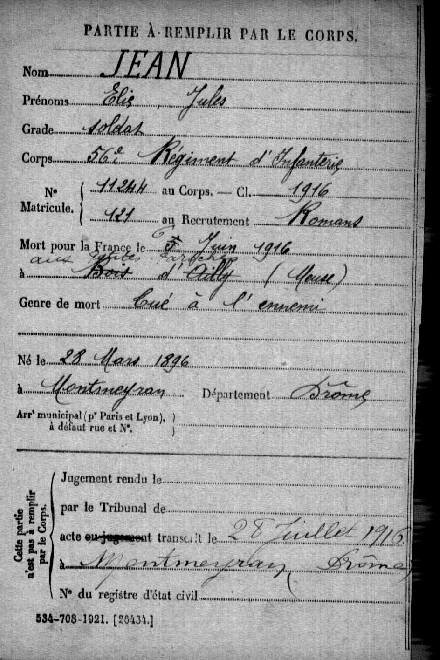 PARTIE À REMPLIR PAR LE CORPS.
Nom JEAN
Prénoms Elie Jules
Grade soldat
Corps 56e Régiment d'Infanterie
N° Matricule. { 11244 au Corps. — Cl. 1916
121 au Recrutement Romans
Mort pour la France le 5 Juin 1916
aux
à Bois d'Ailly (Meuse)
Genre de mort Tué à l'ennemi
Né le 28 Mars 1896
à Montmeyran Département Drôme
Arrt municipal (pr Paris et Lyon), }
à défaut rue et N°.
Cette partie n'est pas à remplir par le Corps.
Jugement rendu le
par le Tribunal de
acte ou jugement transcrit le 28 Juillet 1916
à Montmeyran (Drôme)
N° du registre d'état civil
534-708-1921. [26434.]